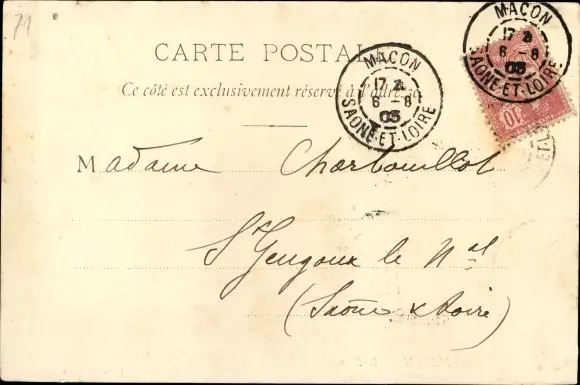 71
CARTE POSTALE
Ce côté est exclusivement réservé à l'adresse
MACON
17
6 - 8
03
SAONE-ET-LOIRE
MACON
17
6 - 8
03
SAONE-ET-LOIRE
10
Madame Charbouillot
St Gengoux le Nal
(Saône & Loire)